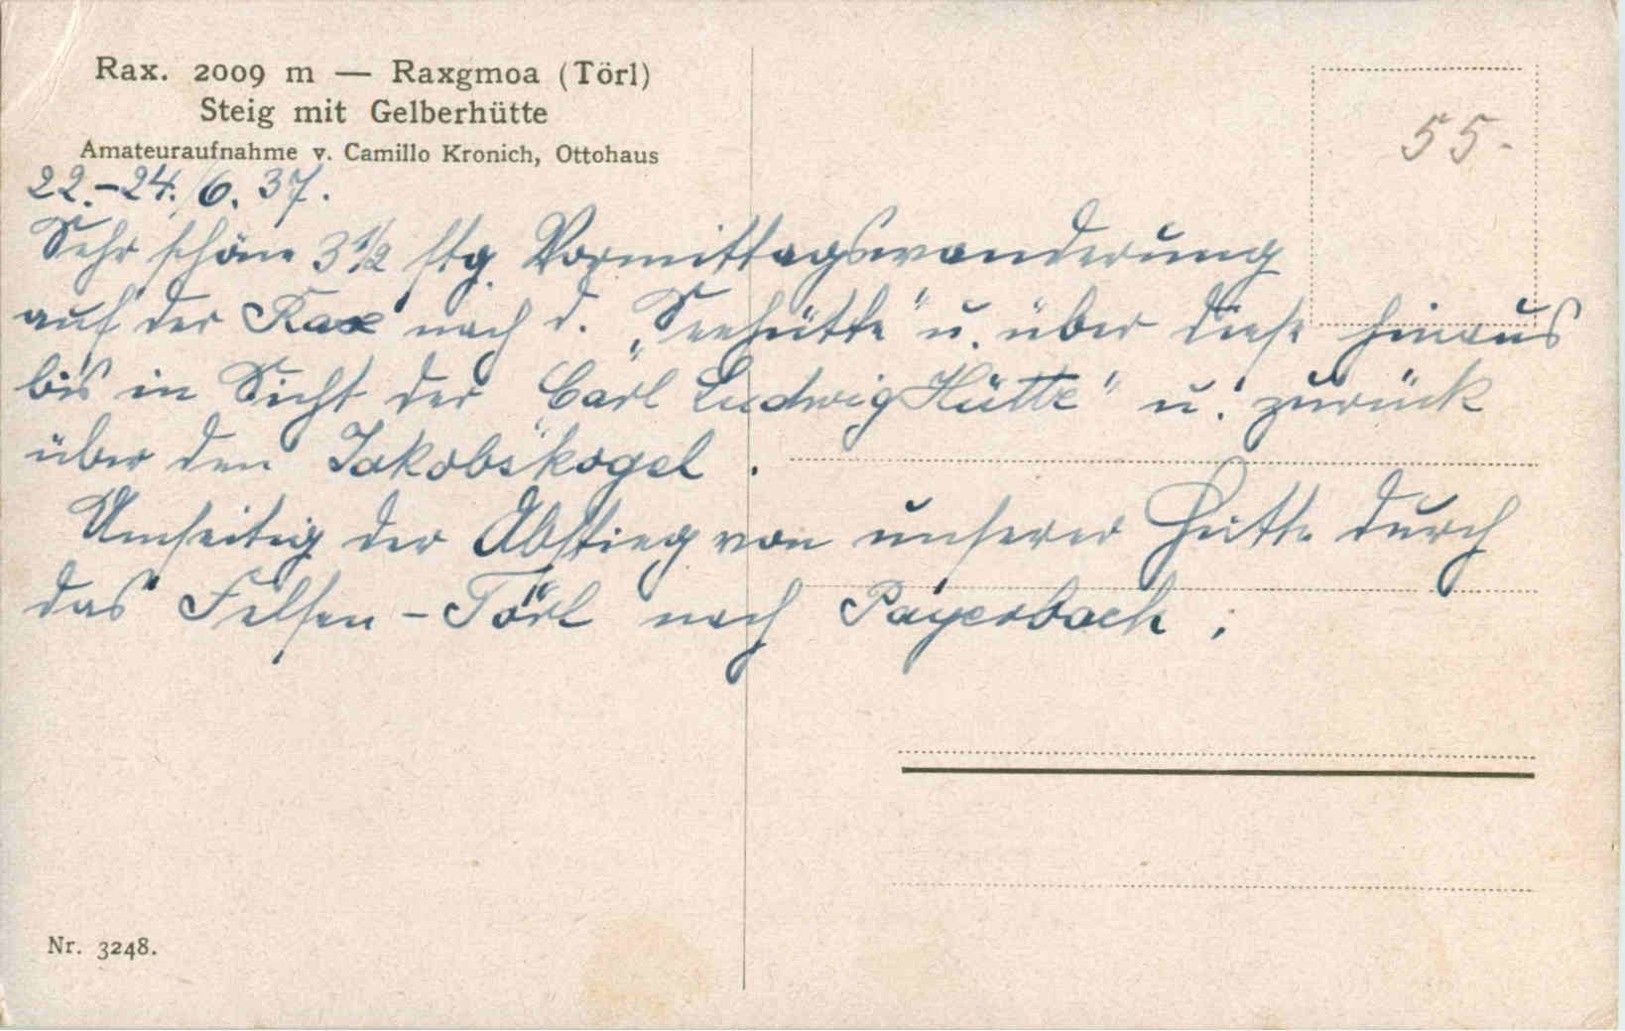 Rax. 2009 m — Raxgmoa (Törl)
Steig mit Gelberhütte
Amateuraufnahme v. Camillo Kronich, Ottohaus
55.-
22.-24./6. 37.
Sehr schöne 3 1/2 stg Vormittagswanderung
auf der Rax nach d. „Seehütte" u. über diese hinaus
bis in Sicht der "Carl Ludwig Hütte" u. zurück
über den Jakobskogel.
Umseitig der Abstieg von unserer Hütte durch
das Felsen-Törl nach Payerbach;
Nr. 3248.